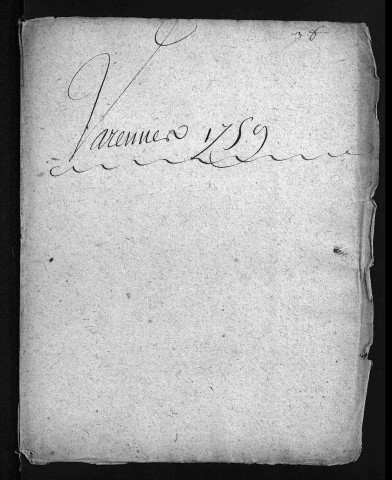 38
Varennes 1759